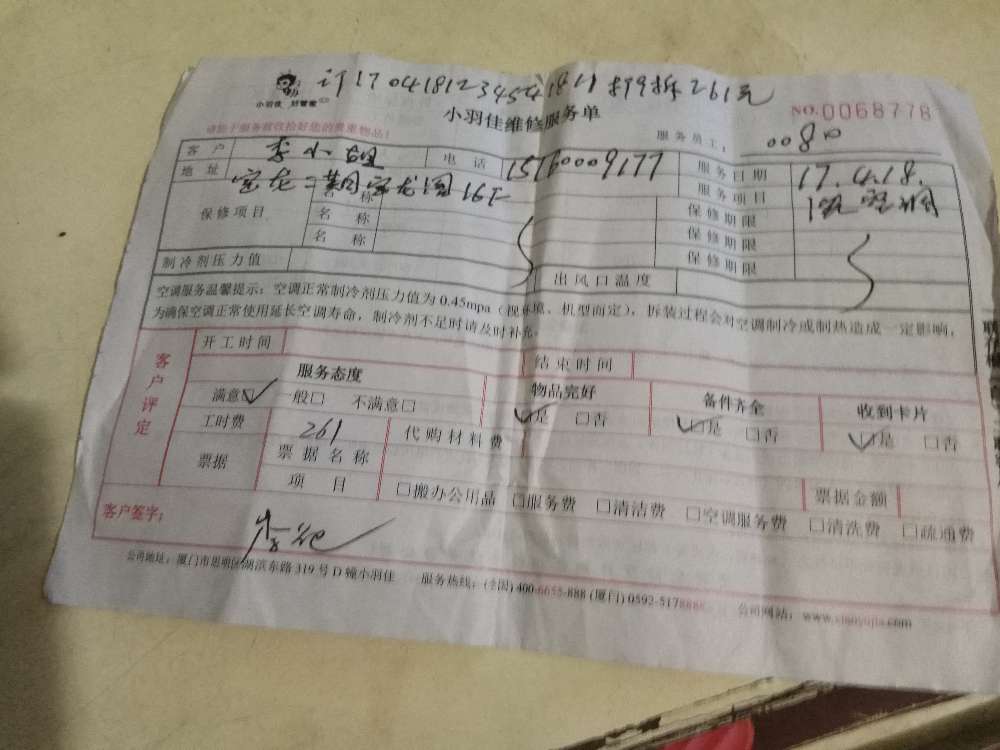 小羽佳 好管家
小羽佳维修服务单
NO.0068778
请您于服务前收拾好您的贵重物品!
服务员工: 0080
客户 李小姐 电话 服务日期 17.4.18.
地址 服务项目
保修项目 名称 保修期限
名称 保修期限
名称 保修期限
制冷剂压力值 出风口温度
空调服务温馨提示:空调正常制冷剂压力值为0.45mpa(视环境、机型而定),拆装过程会对空调制冷或制热造成一定影响,
为确保空调正常使用延长空调寿命,制冷剂不足时请及时补充。
客户评定
开工时间 结束时间
服务态度 物品完好 备件齐全 收到卡片
满意☑ 一般□ 不满意□ ☑是 □否 ☑是 □否 ☑是 □否
工时费 261 代购材料费
票据 票据名称 票据金额
项目 □搬办公用品 □服务费 □清洁费 □空调服务费 □清洗费 □疏通费
客户签字:
公司地址:厦门市思明区湖滨东路319号D幢小羽佳 服务热线:(全国)400-6655-888 (厦门)0592-5178888 公司网站:www.xiaoyujia.com